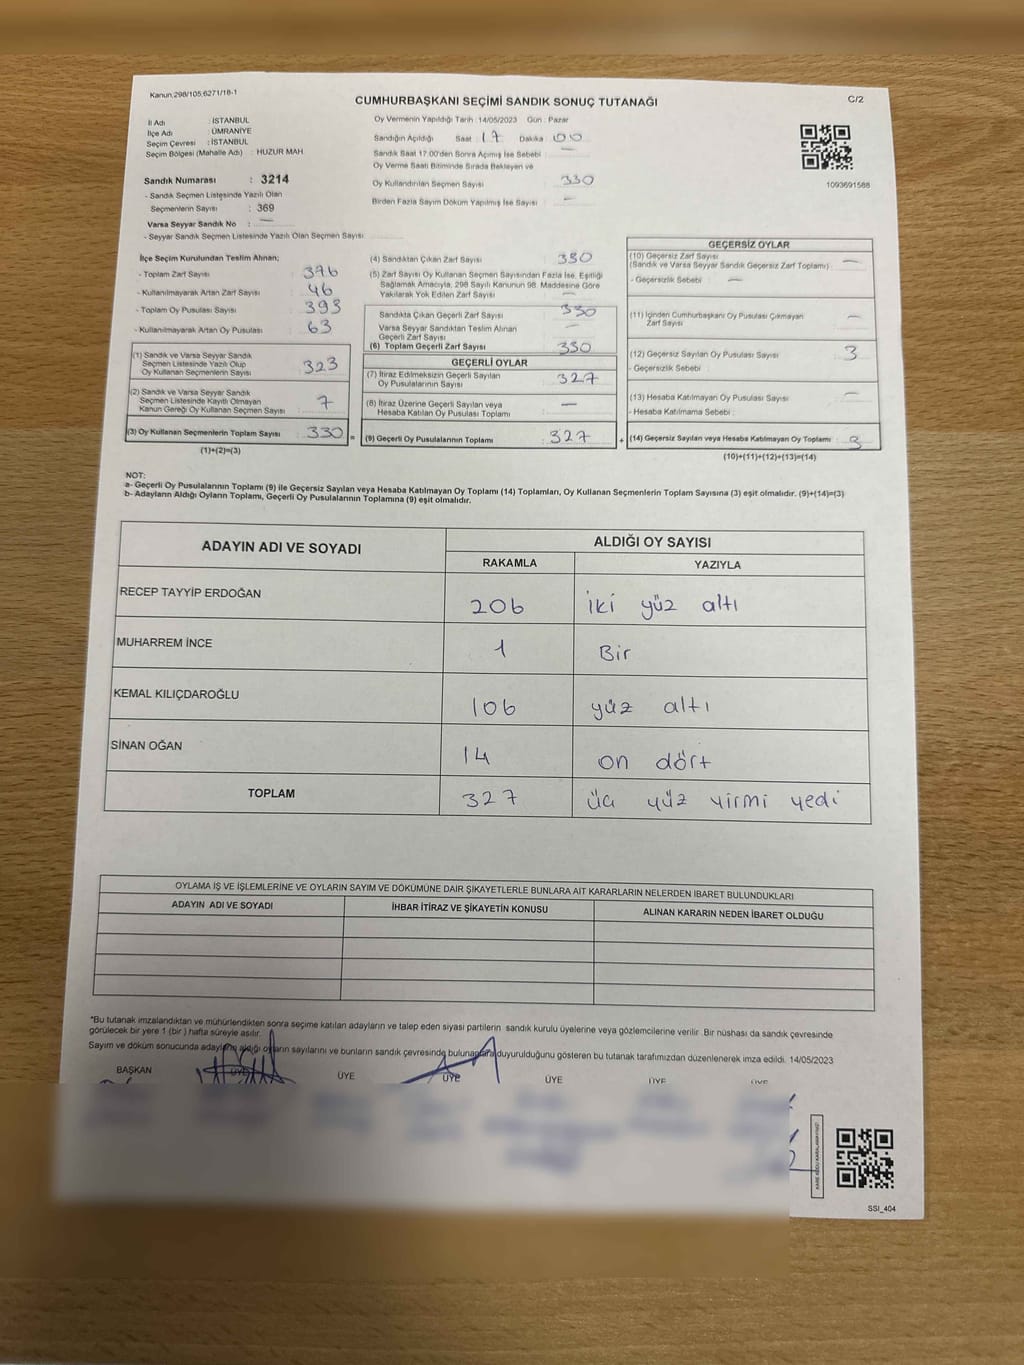 Kanun,298/105,6271/18-1
CUMHURBAŞKANI SEÇİMİ SANDIK SONUÇ TUTANAĞI
C/2
İl Adı : İSTANBUL
İlçe Adı : ÜMRANİYE
Seçim Çevresi : İSTANBUL
Seçim Bölgesi (Mahalle Adı) : HUZUR MAH.
Sandık Numarası : 3214
- Sandık Seçmen Listesinde Yazılı Olan
Seçmenlerin Sayısı : 369
Varsa Seyyar Sandık No : —
- Seyyar Sandık Seçmen Listesinde Yazılı Olan Seçmen Sayısı
Oy Vermenin Yapıldığı Tarih : 14/05/2023 Gün : Pazar
Sandığın Açıldığı Saat 17 Dakika 00
Sandık Saat 17:00'den Sonra Açımış İse Sebebi : —
Oy Verme Saati Bitiminde Sırada Bekleyen ve
Oy Kullandırılan Seçmen Sayısı : 330
Birden Fazla Sayım Döküm Yapılmış İse Sayısı : —
1093691588
İlçe Seçim Kurulundan Teslim Alınan;
- Toplam Zarf Sayısı : 376
- Kullanılmayarak Artan Zarf Sayısı : 46
- Toplam Oy Pusulası Sayısı : 393
- Kullanılmayarak Artan Oy Pusulası : 63
(1) Sandık ve Varsa Seyyar Sandık
Seçmen Listesinde Yazılı Olup
Oy Kullanan Seçmenlerin Sayısı : 323
(2) Sandık ve Varsa Seyyar Sandık
Seçmen Listesinde Kayıtlı Olmayan
Kanun Gereği Oy Kullanan Seçmen Sayısı : 7
(3) Oy Kullanan Seçmenlerin Toplam Sayısı : 330 =
(1)+(2)=(3)
(4) Sandıktan Çıkan Zarf Sayısı : 330
(5) Zarf Sayısı Oy Kullanan Seçmen Sayısından Fazla İse, Eşitliği
Sağlamak Amacıyla, 298 Sayılı Kanunun 98. Maddesine Göre
Yakılarak Yok Edilen Zarf Sayısı : —
Sandıkta Çıkan Geçerli Zarf Sayısı : 330
Varsa Seyyar Sandıktan Teslim Alınan
Geçerli Zarf Sayısı : —
(6) Toplam Geçerli Zarf Sayısı : 330
GEÇERLİ OYLAR
(7) İtiraz Edilmeksizin Geçerli Sayılan
Oy Pusulalarının Sayısı : 327
(8) İtiraz Üzerine Geçerli Sayılan veya
Hesaba Katılan Oy Pusulası Toplamı : —
(9) Geçerli Oy Pusulalarının Toplamı : 327 +
GEÇERSİZ OYLAR
(10) Geçersiz Zarf Sayısı
(Sandık ve Varsa Seyyar Sandık Geçersiz Zarf Toplamı) : —
- Geçersizlik Sebebi : —
(11) İçinden Cumhurbaşkanı Oy Pusulası Çıkmayan
Zarf Sayısı : —
(12) Geçersiz Sayılan Oy Pusulası Sayısı : 3
- Geçersizlik Sebebi :
(13) Hesaba Katılmayan Oy Pusulası Sayısı : —
- Hesaba Katılmama Sebebi :
(14) Geçersiz Sayılan veya Hesaba Katılmayan Oy Toplamı : 3
(10)+(11)+(12)+(13)=(14)
NOT:
a- Geçerli Oy Pusulalarının Toplamı (9) ile Geçersiz Sayılan veya Hesaba Katılmayan Oy Toplamı (14) Toplamları, Oy Kullanan Seçmenlerin Toplam Sayısına (3) eşit olmalıdır. (9)+(14)=(3)
b- Adayların Aldığı Oyların Toplamı, Geçerli Oy Pusulalarının Toplamına (9) eşit olmalıdır.
ADAYIN ADI VE SOYADI ALDIĞI OY SAYISI
RAKAMLA YAZIYLA
RECEP TAYYİP ERDOĞAN 206 iki yüz altı
MUHARREM İNCE 1 Bir
KEMAL KILIÇDAROĞLU 106 yüz altı
SİNAN OĞAN 14 on dört
TOPLAM 327 üç yüz yirmi yedi
OYLAMA İŞ VE İŞLEMLERİNE VE OYLARIN SAYIM VE DÖKÜMÜNE DAİR ŞİKAYETLERLE BUNLARA AİT KARARLARIN NELERDEN İBARET BULUNDUKLARI
ADAYIN ADI VE SOYADI İHBAR İTİRAZ VE ŞİKAYETİN KONUSU ALINAN KARARIN NEDEN İBARET OLDUĞU
*Bu tutanak imzalandıktan ve mühürlendikten sonra seçime katılan adayların ve talep eden siyasi partilerin sandık kurulu üyelerine veya gözlemcilerine verilir. Bir nüshası da sandık çevresinde
görülecek bir yere 1 (bir ) hafta süreyle asılır.
Sayım ve döküm sonucunda adayların aldığı oyların sayılarını ve bunların sandık çevresinde bulunanlara duyurulduğunu gösteren bu tutanak tarafımızdan düzenlenerek imza edildi. 14/05/2023
BAŞKAN ÜYE ÜYE ÜYE ÜYE ÜYE ÜYE
SSI_404